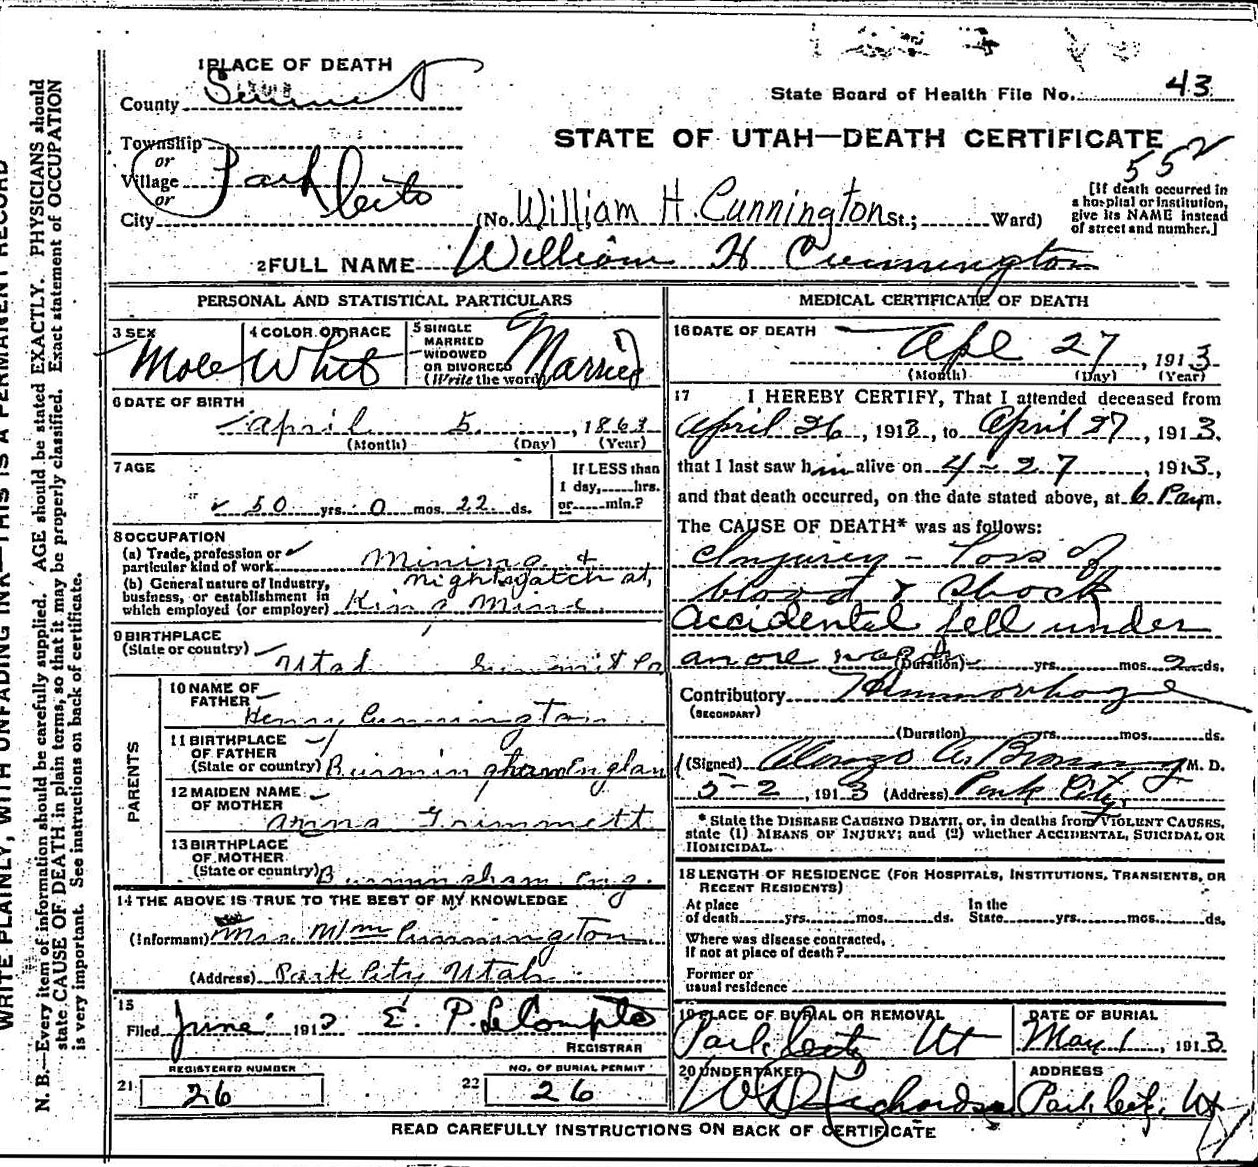 1 PLACE OF DEATH
County Summit
State Board of Health File No. 43
STATE OF UTAH—DEATH CERTIFICATE
552
Township
or
Village
or
City
Park City
(No. William H. Cunnington St.; Ward)
[If death occurred in
a hospital or institution,
give its NAME instead
of street and number.]
2 FULL NAME William H Cunnington
PERSONAL AND STATISTICAL PARTICULARS
3 SEX
Male
4 COLOR OR RACE
White
5 SINGLE
MARRIED
WIDOWED
OR DIVORCED
(Write the word)
Married
6 DATE OF BIRTH
April 5, 1863
(Month) (Day) (Year)
7 AGE
50 yrs. 0 mos. 22 ds.
If LESS than
1 day, hrs.
or min.?
8 OCCUPATION
(a) Trade, profession or
particular kind of work
Mining &
(b) General nature of Industry,
business, or establishment in
which employed (or employer)
nightwatch at,
King Mine
9 BIRTHPLACE
(State or country)
Utah Summit Co
PARENTS
10 NAME OF
FATHER
Henry Cunnington
11 BIRTHPLACE
OF FATHER
(State or country) Burmingham England
12 MAIDEN NAME
OF MOTHER
Anna Grimmett
13 BIRTHPLACE
OF MOTHER
(State or country) Burmingham Eng.
14 THE ABOVE IS TRUE TO THE BEST OF MY KNOWLEDGE
(Informant) Mrs. Wm Cunnington
(Address) Park City Utah
15
Filed June 1913 E. P. LeCompte
REGISTRAR
21 REGISTERED NUMBER
26
22 NO. OF BURIAL PERMIT
26
MEDICAL CERTIFICATE OF DEATH
16 DATE OF DEATH
Apl 27, 1913
(Month) (Day) (Year)
17 I HEREBY CERTIFY, That I attended deceased from
April 26, 1913, to April 27, 1913.
that I last saw him alive on 4-27, 1913,
and that death occurred, on the date stated above, at 6 P.m.
The CAUSE OF DEATH* was as follows:
Injury - Loss of
blood & Shock
Accidental fell under
an ore wagon (Duration) yrs. mos. 2 ds.
Contributory Hemmorhage
(SECONDARY)
(Duration) yrs. mos. ds.
(Signed) Alonzo M. D.
5-2, 1913 (Address) Park City.
* State the DISEASE CAUSING DEATH, or, in deaths from VIOLENT CAUSES,
state (1) MEANS OF INJURY; and (2) whether ACCIDENTAL, SUICIDAL OR
HOMICIDAL.
18 LENGTH OF RESIDENCE (FOR HOSPITALS, INSTITUTIONS, TRANSIENTS, OR
RECENT RESIDENTS)
At place
of death yrs. mos. ds.
In the
State yrs. mos. ds.
Where was disease contracted,
if not at place of death?
Former or
usual residence
19 PLACE OF BURIAL OR REMOVAL
Park City Ut
DATE OF BURIAL
May 1, 1913
20 UNDERTAKER
W D Richardson
ADDRESS
Park City, Ut
READ CAREFULLY INSTRUCTIONS ON BACK OF CERTIFICATE
WRITE PLAINLY, WITH UNFADING INK—THIS IS A PERMANENT RECORD
N. B.—Every item of information should be carefully supplied. AGE should be stated EXACTLY. PHYSICIANS should
state CAUSE OF DEATH in plain terms, so that it may be properly classified. Exact statement of OCCUPATION
is very important. See instructions on back of certificate.